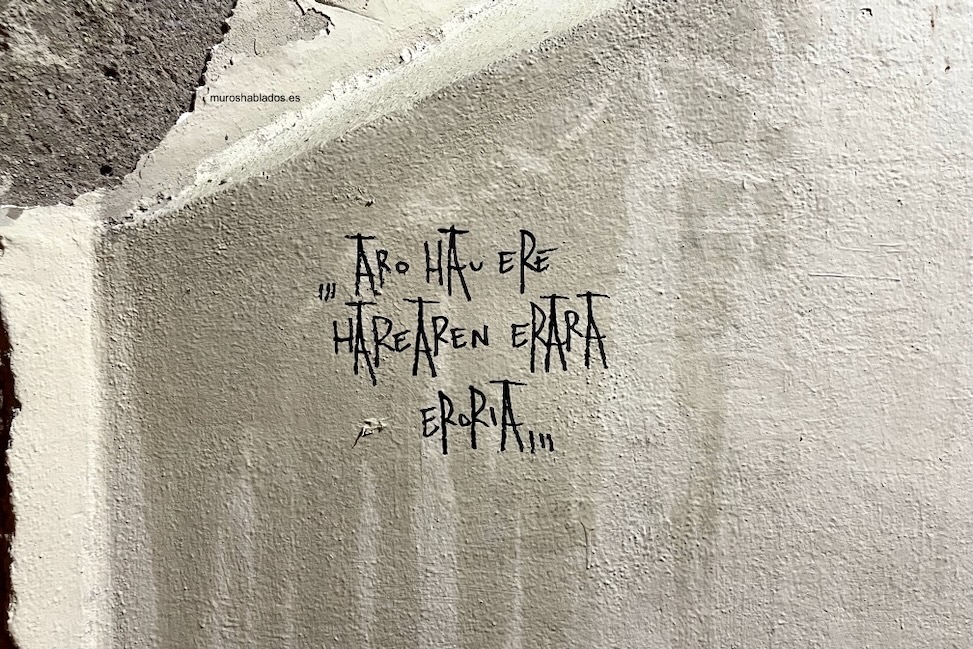 muroshablados.es
,,, ARO HAU ERE
HAREAREN ERARA
ERORIA,,,